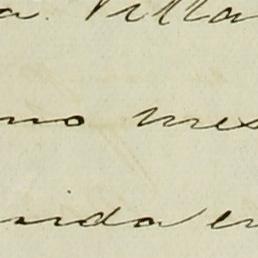 a. Villa
mo mes
uida en